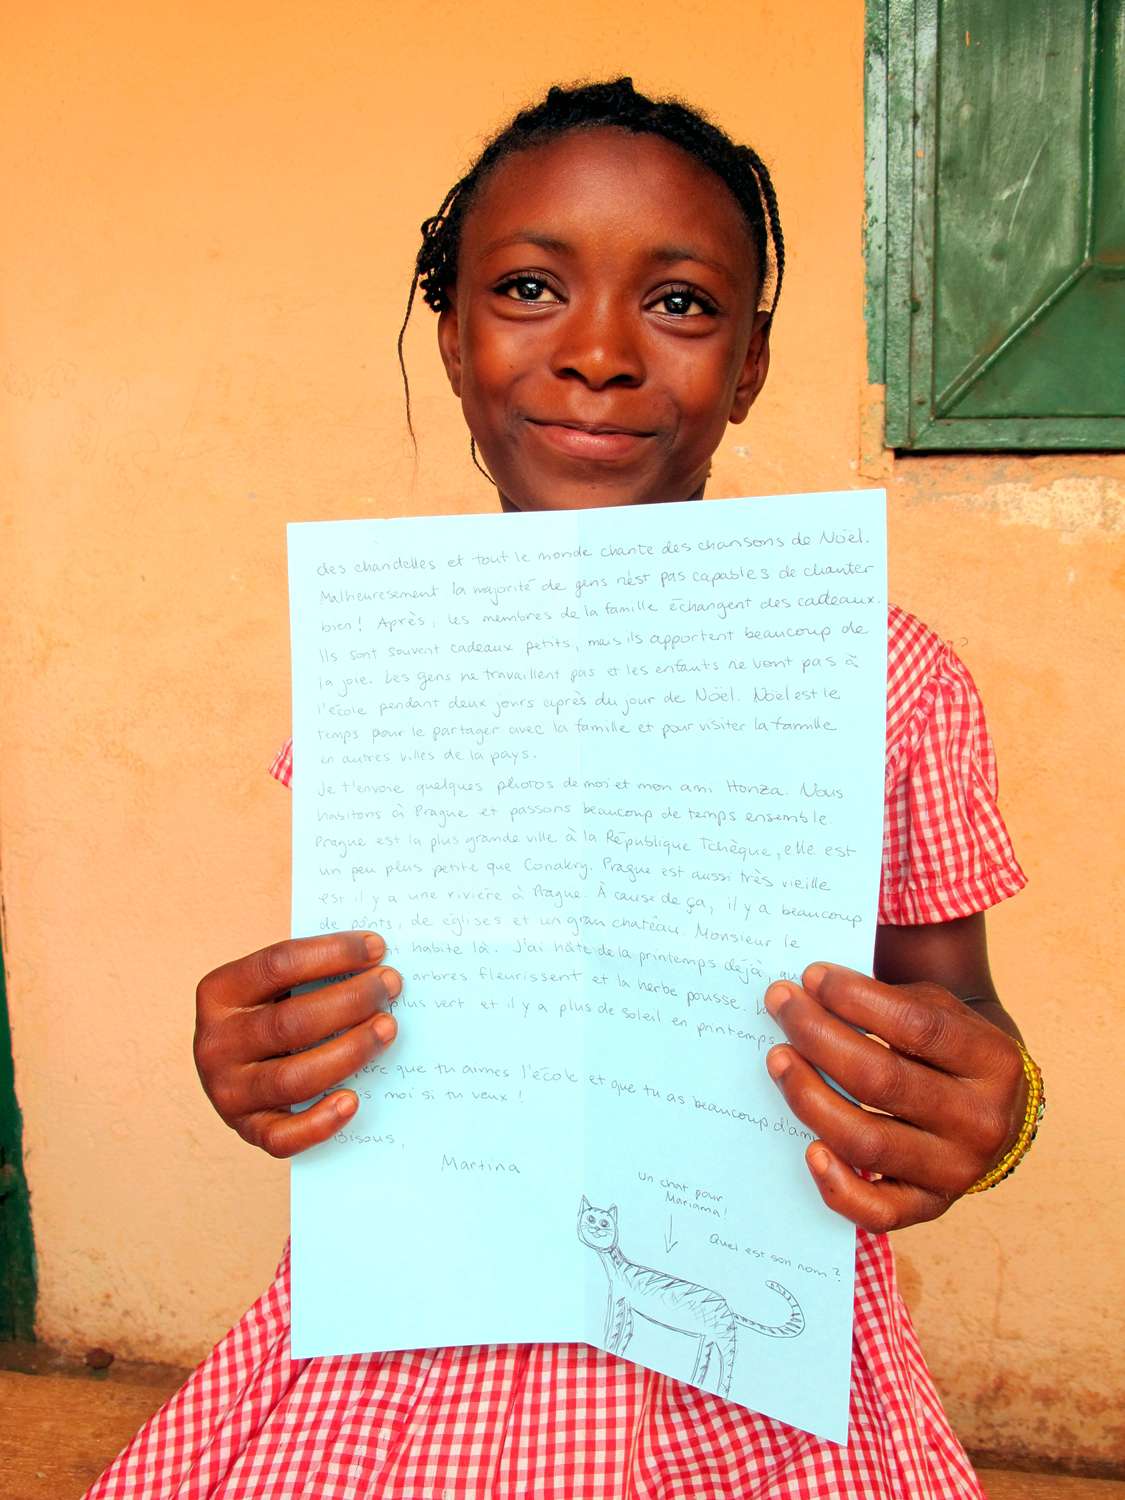 des chandelles et tout le monde chante des chansons de Noël.
Malheuresement la majorité de gens n'est pas capables de chanter
bien! Après, les membres de la famille échangent des cadeaux.
Ils sont souvent cadeaux petits, mais ils apportent beaucoup de
la joie. Les gens ne travaillent pas et les enfants ne vont pas à
l'école pendant deux jours après du jour de Noël. Noël est le
temps pour le partager avec la famille et pour visiter la famille
en autres villes de la pays.
Je t'envoie quelques photos de moi et mon ami Honza. Nous
habitons à Prague et passons beaucoup de temps ensemble.
Prague est la plus grande ville à la République Tchèque, elle est
un peu plus petite que Conakry. Prague est aussi très vieille
est il y a une rivière à Prague. À cause de ça, il y a beaucoup
de ponts, de églises et un gran chateau. Monsieur le
habite là. J'ai hâte de la printemps déjà,
arbres fleurissent et la herbe pousse.
plus vert et il y a plus de soleil en printemps
que tu aimes l'école et que tu as beaucoup
moi si tu veux!
Bisous,
Martina
Un chat pour
Mariama!
Quel est son nom?